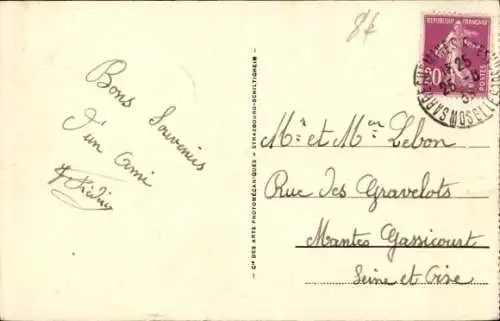 Bons Souvenirs
d'un ami
Cie DES ARTS PHOTOMÉCANIQUES - STRASBOURG-SCHILTIGHEIM -
8f
REPUBLIQUE FRANÇAISE
POSTES
MOSELLE
Me et Mer Lebon
Rue des Gravelots
Mantes Gassicourt
Seine et Oise